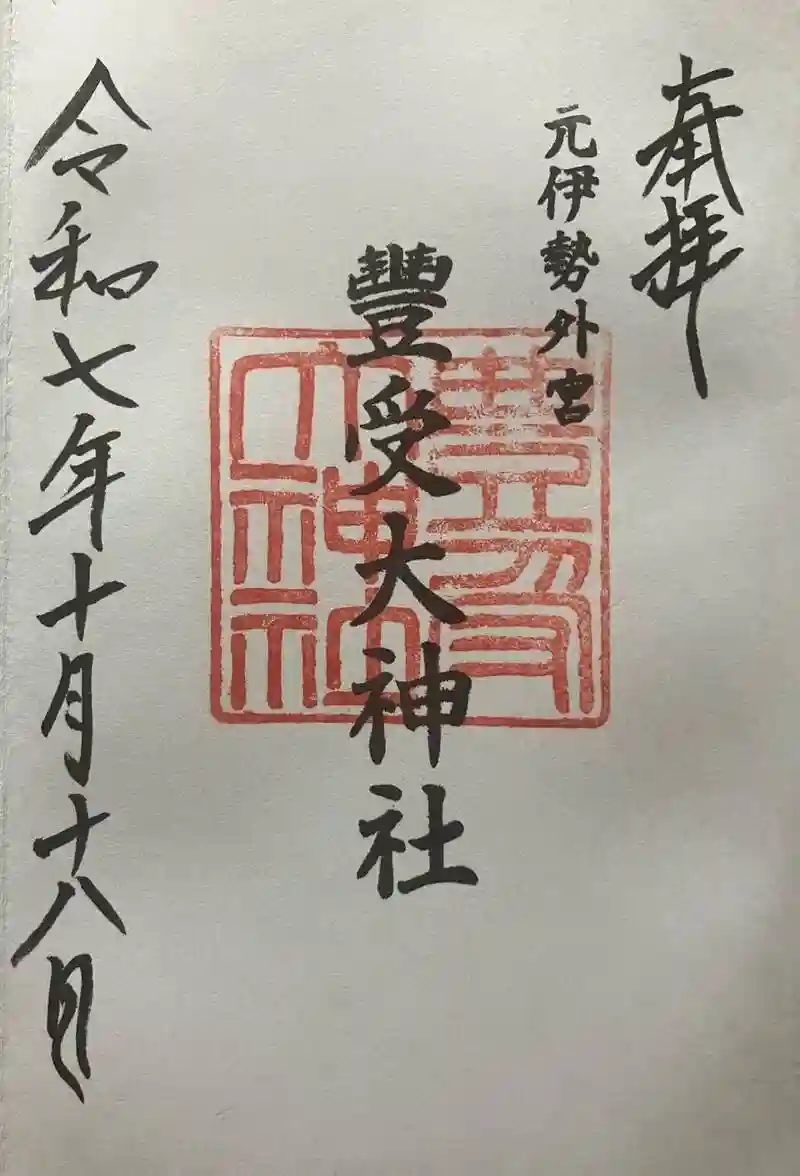 奉拝
元伊勢外宮
豐受大神社
令和七年十月十八日